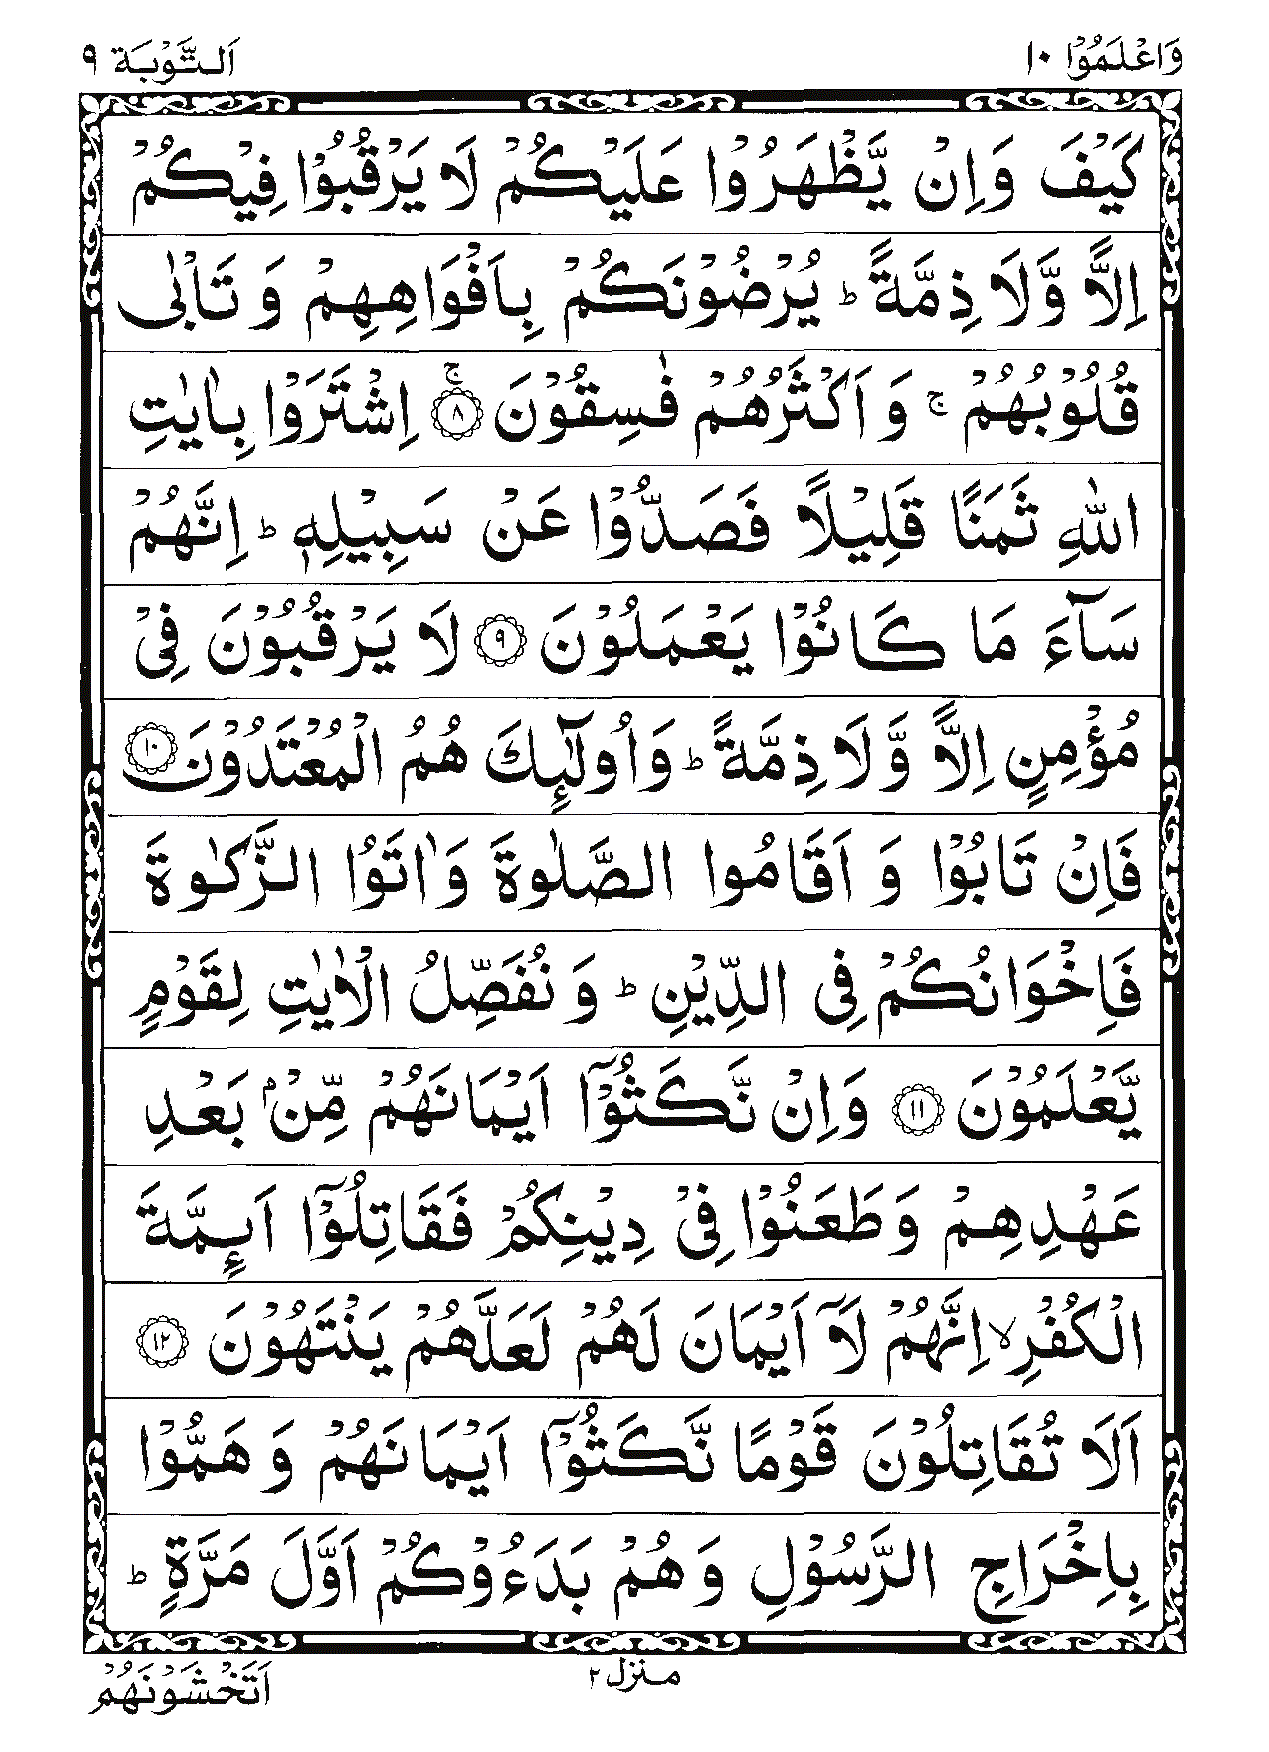 وَاعْلَمُوْٓا ١٠ اَلتَّوْبَة ٩
كَيْفَ وَاِنْ يَّظْهَرُوْا عَلَيْكُمْ لَا يَرْقُبُوْا فِيْكُمْ
اِلًّا وَّلَا ذِمَّةً ؕ يُرْضُوْنَكُمْ بِاَفْوَاهِهِمْ وَ تَاْبٰى
قُلُوْبُهُمْ ۚ وَ اَكْثَرُهُمْ فٰسِقُوْنَ ۚ ﴿٨﴾ اِشْتَرَوْا بِاٰيٰتِ
اللّٰهِ ثَمَنًا قَلِيْلًا فَصَدُّوْا عَنْ سَبِيْلِهٖ ؕ اِنَّهُمْ
سَآءَ مَا كَانُوْا يَعْمَلُوْنَ ﴿٩﴾ لَا يَرْقُبُوْنَ فِيْ
مُؤْمِنٍ اِلًّا وَّلَا ذِمَّةً ؕ وَاُولٰٓئِكَ هُمُ الْمُعْتَدُوْنَ ﴿١٠﴾
فَاِنْ تَابُوْا وَ اَقَامُوا الصَّلٰوةَ وَاٰتَوُا الزَّكٰوةَ
فَاِخْوَانُكُمْ فِي الدِّيْنِ ؕ وَ نُفَصِّلُ الْاٰيٰتِ لِقَوْمٍ
يَّعْلَمُوْنَ ﴿١١﴾ وَاِنْ نَّكَثُوْٓا اَيْمَانَهُمْ مِّنْۢ بَعْدِ
عَهْدِهِمْ وَطَعَنُوْا فِيْ دِيْنِكُمْ فَقَاتِلُوْٓا اَئِمَّةَ
الْكُفْرِ ۙ اِنَّهُمْ لَآ اَيْمَانَ لَهُمْ لَعَلَّهُمْ يَنْتَهُوْنَ ﴿١٢﴾
اَلَا تُقَاتِلُوْنَ قَوْمًا نَّكَثُوْٓا اَيْمَانَهُمْ وَ هَمُّوْا
بِاِخْرَاجِ الرَّسُوْلِ وَ هُمْ بَدَءُوْكُمْ اَوَّلَ مَرَّةٍ ؕ
منزل ٢
اَتَخْشَوْنَهُمْ